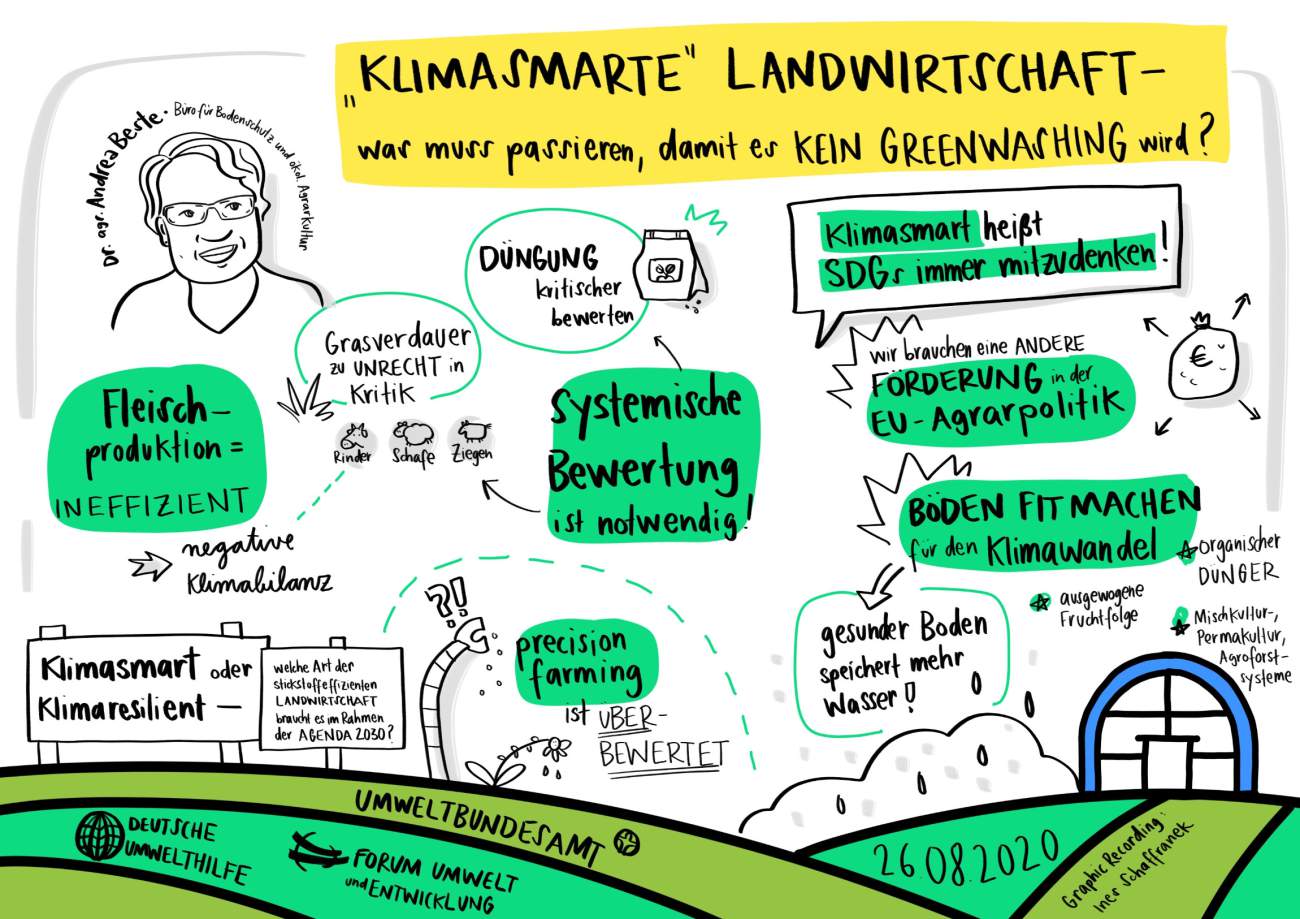 „KLIMASMARTE" LANDWIRTSCHAFT –
was muss passieren, damit es KEIN GREENWASHING wird?
Dr. agr. Andrea Beste · Büro für Bodenschutz und ökol. Agrarkultur
Klimasmart heißt
SDGs immer mitzudenken!
DÜNGUNG
kritischer
bewerten
Grasverdauer
zu UNRECHT in
Kritik
Rinder
Schafe
Ziegen
Fleisch-
produktion =
INEFFIZIENT
negative
Klimabilanz
Systemische
Bewertung
ist notwendig!
wir brauchen eine ANDERE
FÖRDERUNG in der
EU-Agrarpolitik
€
BÖDEN FIT MACHEN
für den Klimawandel
organischer
DÜNGER
ausgewogene
Fruchtfolge
Mischkultur-,
Permakultur,
Agroforst-
systeme
gesunder Boden
speichert mehr
Wasser!
?!
precision
farming
ist ÜBER-
BEWERTET
Klimasmart oder
Klimaresilient –
welche Art der
stickstoffeffizienten
LANDWIRTSCHAFT
braucht es im Rahmen
der AGENDA 2030?
UMWELTBUNDESAMT
DEUTSCHE
UMWELTHILFE
FORUM UMWELT
und ENTWICKLUNG
26.08.2020
Graphic Recording:
Ines Schaffranek